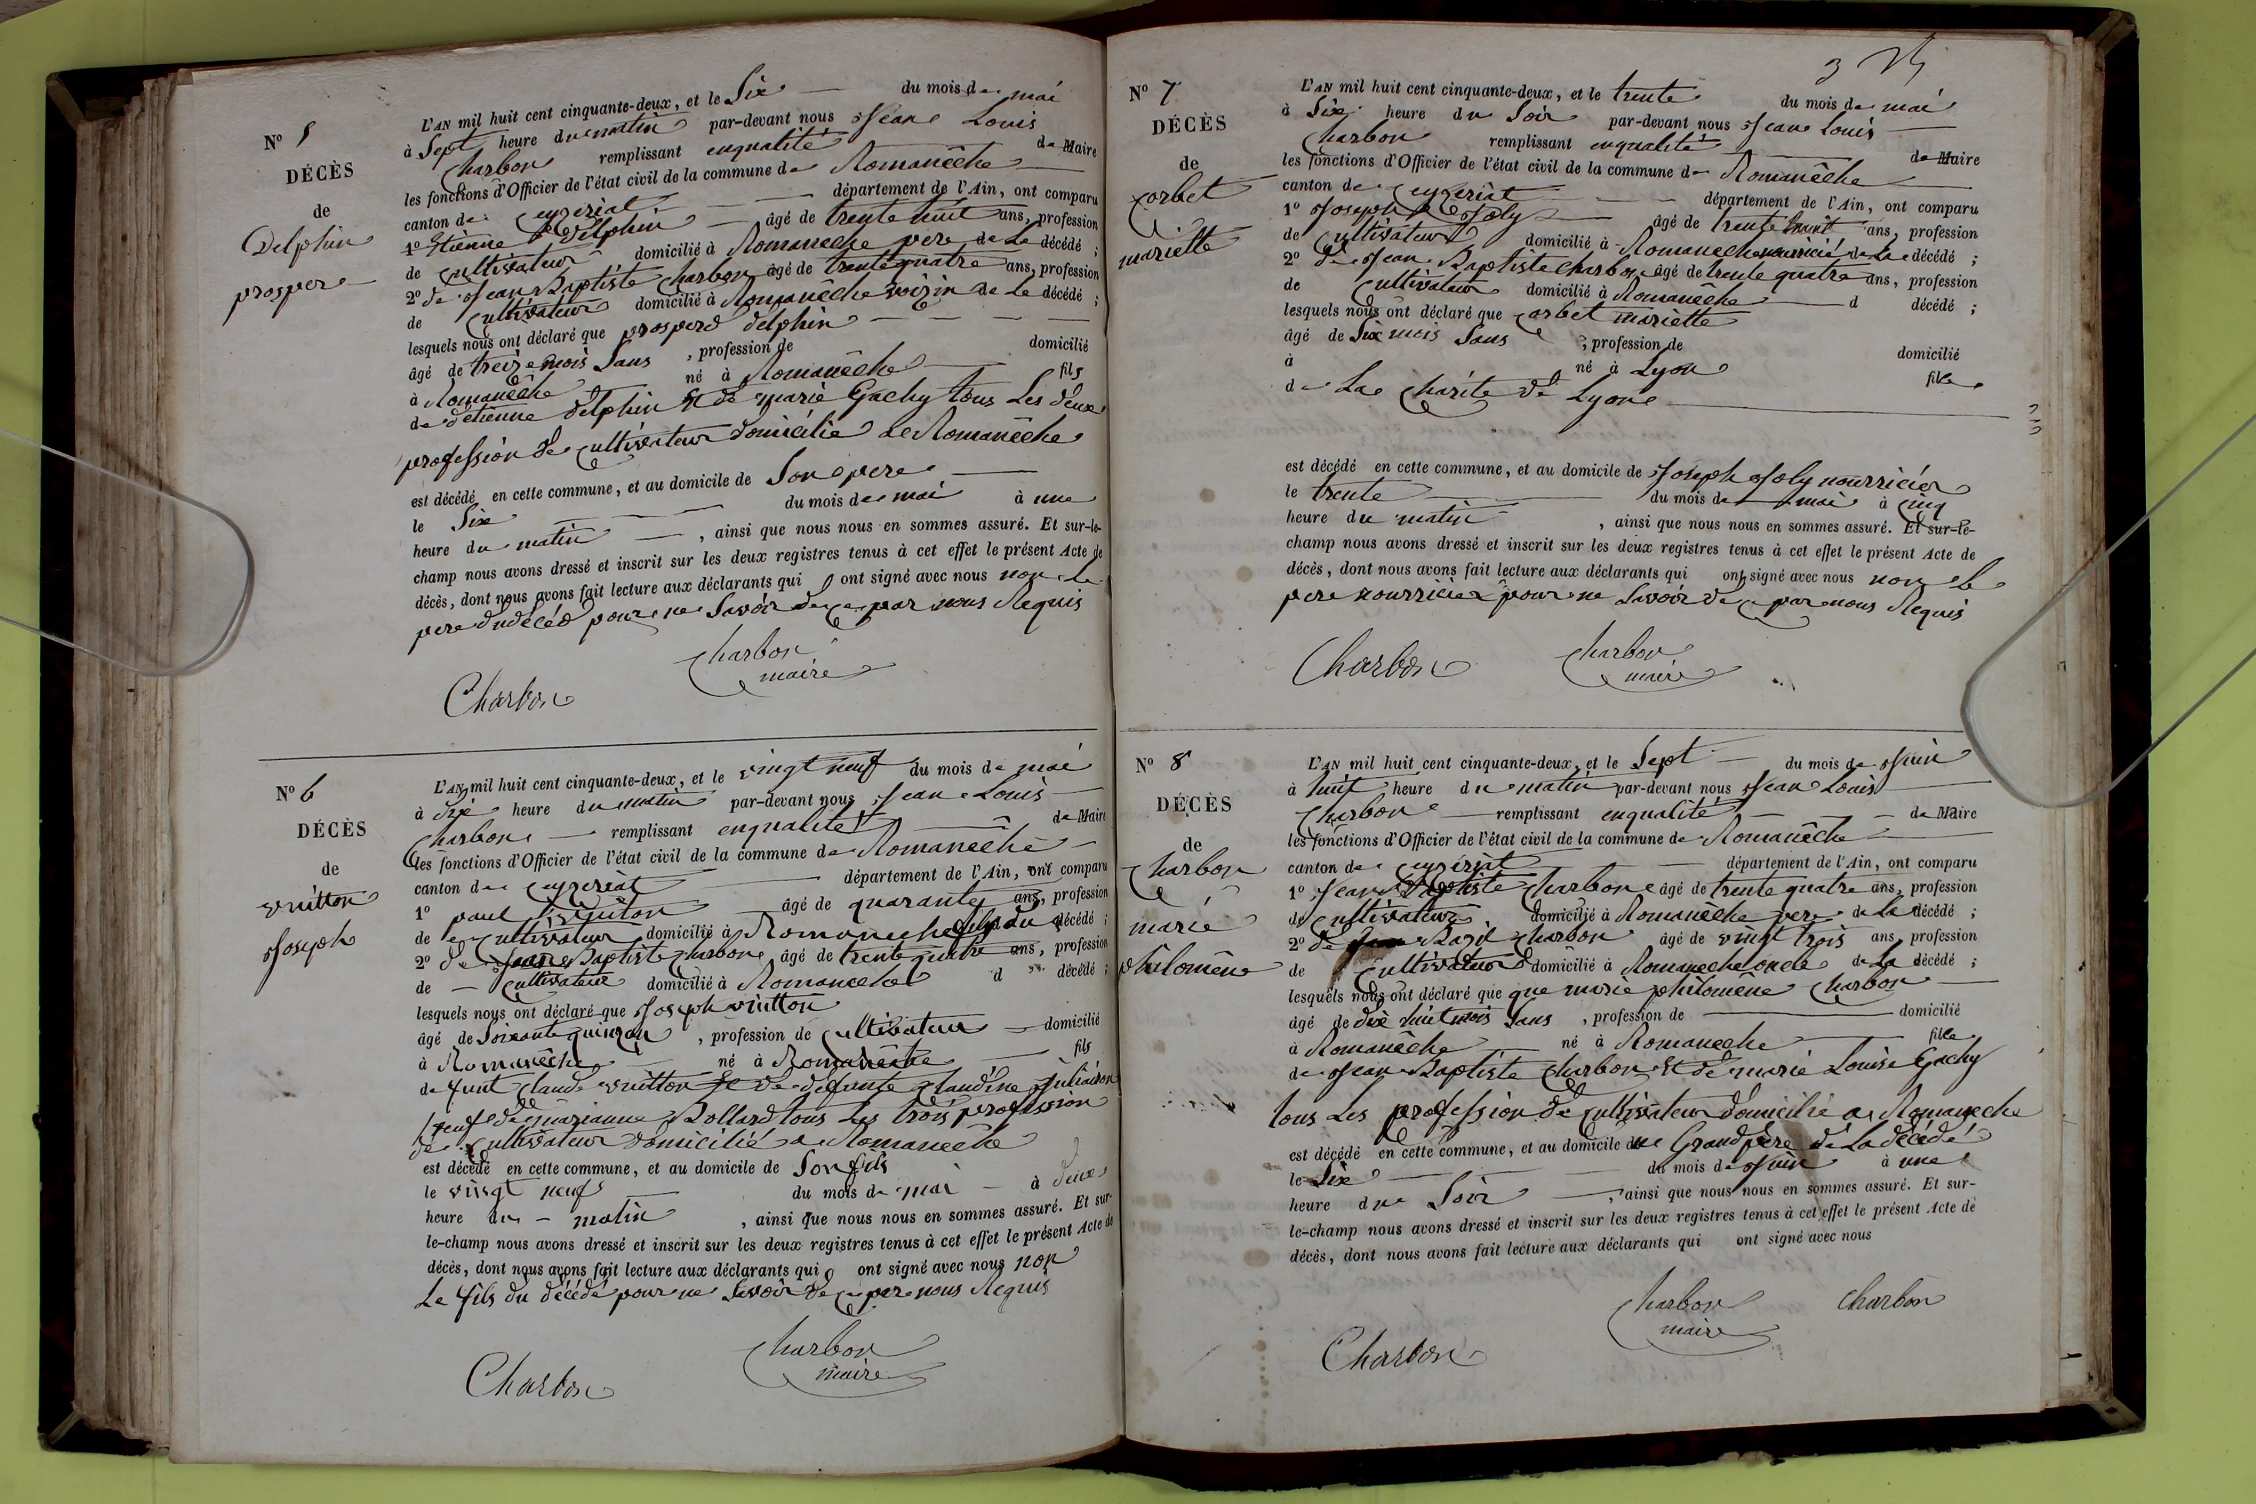 Nº 5
DÉCÈS
de
Delphin
prospere
L'AN mil huit cent cinquante-deux, et le Six du mois de mai
à Sept heure du matin par-devant nous Jean Louis
Charbon remplissant enqualité de Maire
les fonctions d'Officier de l'état civil de la commune de Romanêche
canton de Ceyzeriat département de l'Ain, ont comparu
1º Etienne Delphin âgé de trente huit ans, profession
de Cultivateur domicilié à Romaneche pere de Le décédé ;
2º de Jean Baptiste Charbon âgé de trente quatre ans, profession
de Cultivateur domicilié à Romanêche voizin de Le décédé ;
lesquels nous ont déclaré que prosperd delphin
âgé de treize mois Sans , profession de domicilié
à Romanêche né à Romanêche fils
de détienne delphin Et de marie Gachy tous Les deux
profession de Cultivateur domicilie de Romanêche
est décédé en cette commune, et au domicile de Son pere
le Six du mois de mai à une
heure du matin , ainsi que nous nous en sommes assuré. Et sur-le-
champ nous avons dressé et inscrit sur les deux registres tenus à cet effet le présent Acte de
décès, dont nous avons fait lecture aux déclarants qui ont signé avec nous non Le
pere dudécéd pour ne Savoir de ce par nous Requis
Charbon
maire
Charbon
Nº 6
DÉCÈS
de
vuitton
Joseph
L'AN mil huit cent cinquante-deux, et le vingt neuf du mois de mai
à dix heure du matin par-devant nous Jean Louis
Charbon remplissant enqualité de Maire
les fonctions d'Officier de l'état civil de la commune de Romanêche
canton de Ceyzeriat département de l'Ain, ont comparu
1º paul vuiton âgé de quarante ans, profession
de Cultivateur domicilié à Romaneche fils du décédé ;
2º de Jean Baptiste Charbon âgé de trente quatre ans, profession
de Cultivateur domicilié à Romaneche d décédé ;
lesquels nous ont déclaré que Joseph vuitton
âgé de Soixante quinze an , profession de Cultivateur domicilié
à Romanêche né à Romanêche fils
de funt Claude vuitton Et de défunte Claudine Juliaison
veuf de marianne Bollard tous Les trois profession
de Cultivateur domicilié a Romanêche
est décédé en cette commune, et au domicile de Son fils
le vingt neuf du mois de mai à deux
heure du matin , ainsi que nous nous en sommes assuré. Et sur-
le-champ nous avons dressé et inscrit sur les deux registres tenus à cet effet le présent Acte de
décès, dont nous avons fait lecture aux déclarants qui ont signé avec nous non
Le fils du décédé pour ne Savoir de ce par nous Requis
Charbon
maire
Charbon
3
Nº 7
DÉCÈS
de
Corbet
mariette
L'AN mil huit cent cinquante-deux, et le trente du mois de mai
à Six heure du Soir par-devant nous Jean Louis
Charbon remplissant enqualité de Maire
les fonctions d'Officier de l'état civil de la commune de Romanêche
canton de Ceyzeriat département de l'Ain, ont comparu
1º Joseph Joly âgé de trente huit ans, profession
de Cultivateur domicilié à Romaneche nourricié de La décédé ;
2º de Jean Baptiste Charbon âgé de trente quatre ans, profession
de Cultivateur domicilié à Romanêche d décédé ;
lesquels nous ont déclaré que Corbet mariette
âgé de Six mois Sans , profession de
à né à Lyon domicilié
de La Charite de Lyon fille
est décédé en cette commune, et au domicile de Joseph Joly nourricier
le trente du mois de mai à Cinq
heure du matin , ainsi que nous nous en sommes assuré. Et sur-le-
champ nous avons dressé et inscrit sur les deux registres tenus à cet effet le présent Acte de
décès, dont nous avons fait lecture aux déclarants qui ont signé avec nous non le
pere nourricier pour ne Savoir de ce par nous Requis
Charbon
Charbon
maire
Nº 8
DÉCÈS
de
Charbon
marie
Philomêne
L'AN mil huit cent cinquante-deux, et le Sept du mois de Juin
à huit heure du matin par-devant nous Jean Louis
Charbon remplissant enqualité de Maire
les fonctions d'Officier de l'état civil de la commune de Romanêche
canton de Ceyzériat département de l'Ain, ont comparu
1º Jean Baptiste Charbon âgé de trente quatre ans, profession
de Cultivateur domicilié à Romanêche pere de La décédé ;
2º de Bazil Charbon âgé de vingt trois ans, profession
de Cultivateur domicilié à Romaneche oncle de La décédé ;
lesquels nous ont déclaré que que marie philomêne Charbon
âgé de dix huit mois Sans , profession de domicilié
à Romanêche né à Romaneche fille
de Jean Baptiste Charbon Et de marie Louise Gachy
tous Les profession de Cultivateur domicilié a Romaneche
est décédé en cette commune, et au domicile du Grand pere de La décédé
le Six du mois de Juin à une
heure du Soir , ainsi que nous nous en sommes assuré. Et sur-
le-champ nous avons dressé et inscrit sur les deux registres tenus à cet effet le présent Acte de
décès, dont nous avons fait lecture aux déclarants qui ont signé avec nous
Charbon
maire
Charbon
Charbon